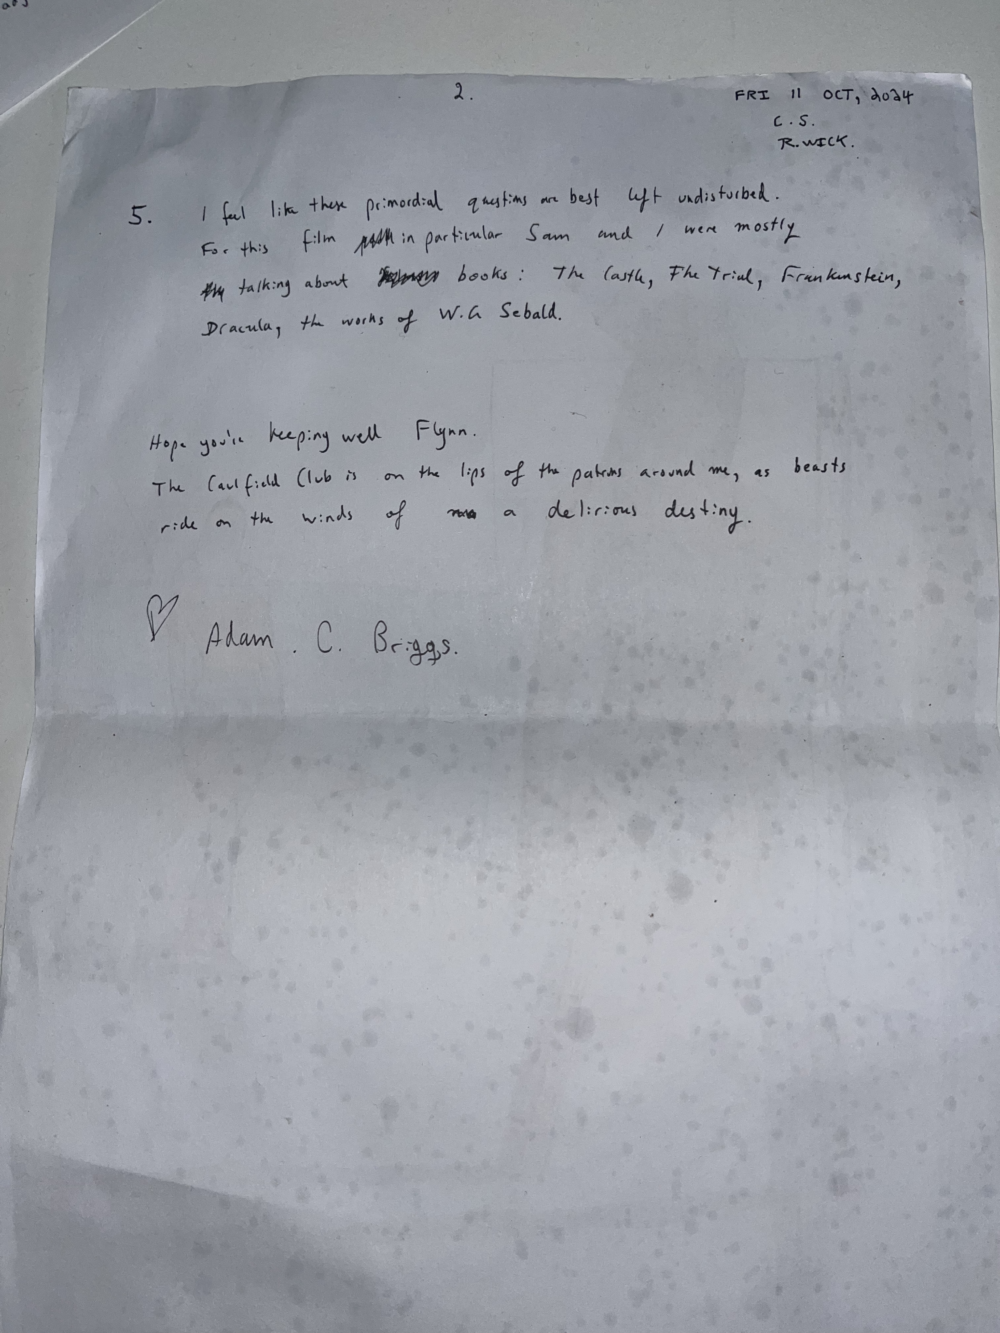 2.
FRI 11 OCT, 2024
C.S.
R.WICK.
5. I feel like these primordial questions are best left undisturbed.
For this film in particular Sam and I were mostly
talking about books: The Castle, The Trial, Frankenstein,
Dracula, the works of W.G Sebald.
Hope you're keeping well Flynn.
The Caulfield Club is on the lips of the patrons around me, as beasts
ride on the winds of a delirious destiny.
♡ Adam. C. Briggs.